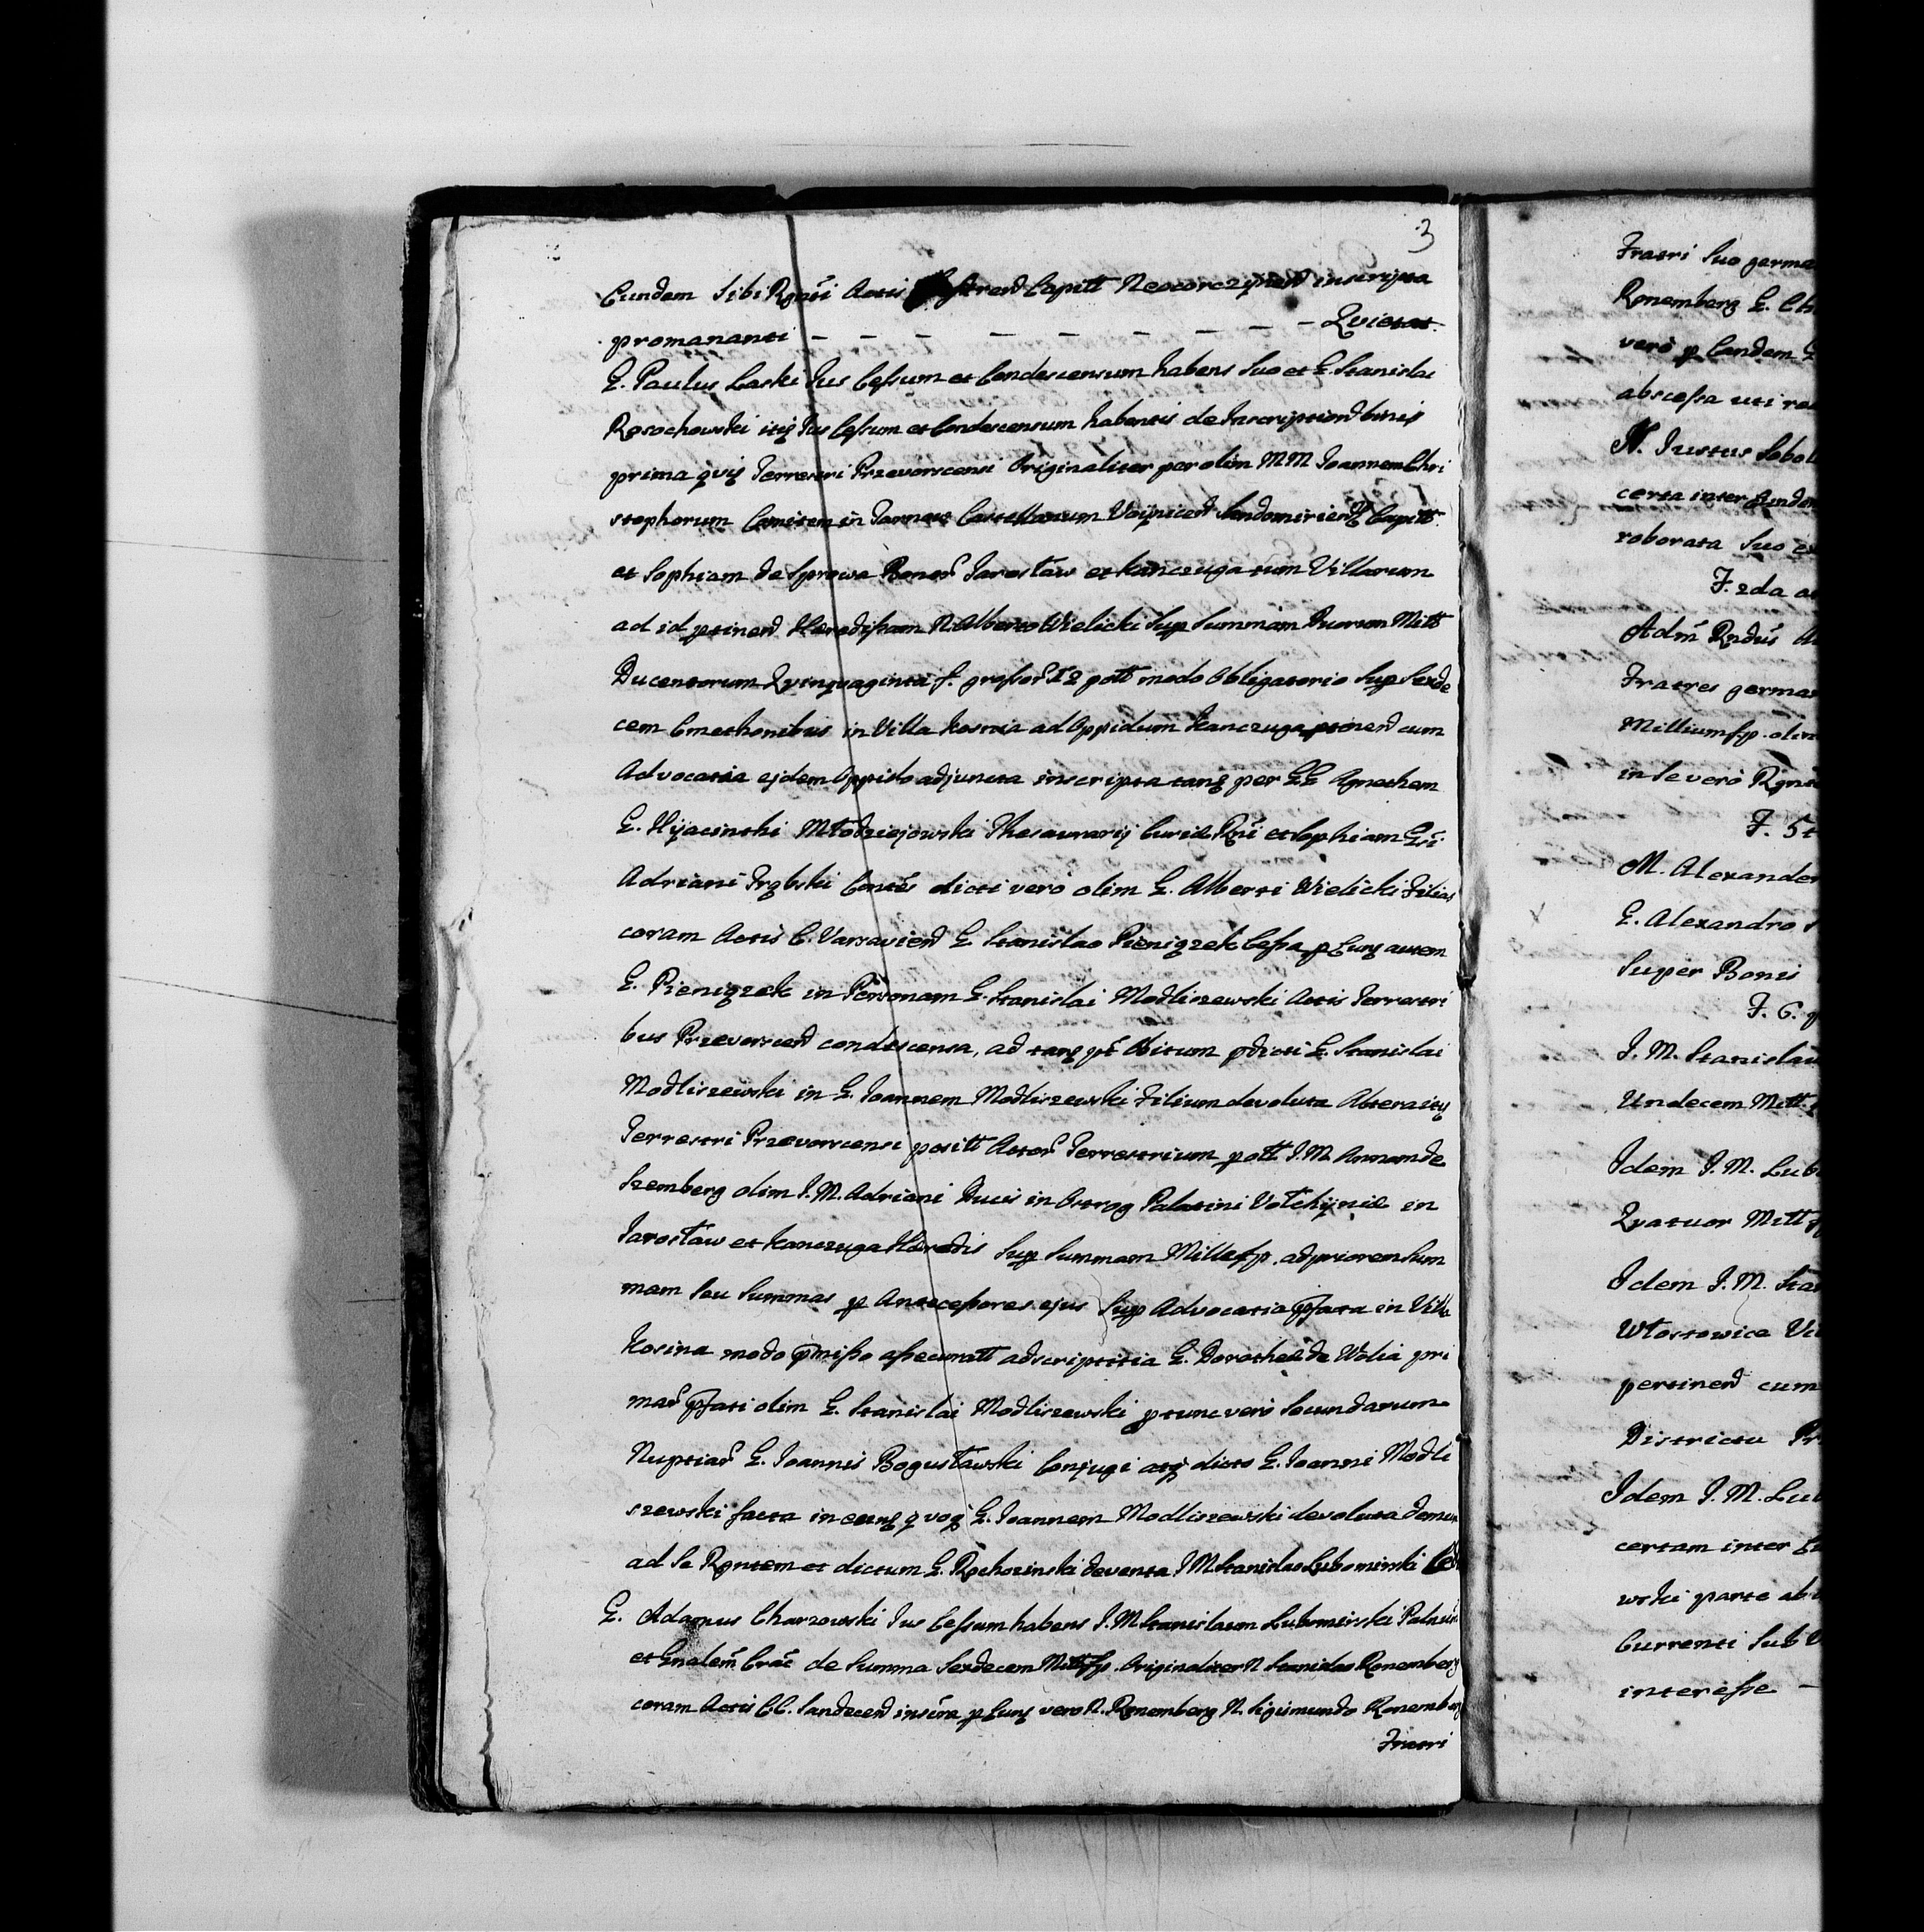 3
Eundem Sibi Rgnõi Actis Castrend Capitt Neocorczynend inscripta
promananti – – – – – – – – Qvietat.
G. Paulus Laski Jus Cessum et Condescensum habens Suo et G. Stanislai
Rosochowski itiq Jus Cessum et Condescensum habentis de Inscriptiond binis
prima qvis Terrestri Przevorscensi Originaliter per olim MM Joannem Chri
stophorum Comitem in Tarnow Castellanum Voijnicend Sendomiriendq Capitt
et Sophiam de Sprowa Bonor Jarosław et Kanczuga tum Villarum
ad id ptinend Hæredissam N. Alberto Wielicki Sup Summam Duorum Mill
Ducentorum Qvinqvaginta f. grossor 12 pott modo Obligatorio Sup Sexde
cem Cmethonibus in Villa Kosina ad Oppidum Kanczuga ptinend cum
Advocatia ejdem Oppido adjuncta inscripta tanq per GG Agnethem
G. Hijacinthi Młodziejowski Thesaurarij Curiæ Rni et Sophiam Gsi
Adriani Trębski Contes dicti verò olim G. Alberti Wielicki Filias
coram Actis C. Varsaviend G. Stanislao Pieniązek Cessa p Eunq autem
G. Pieniązek in Personam G. Stanislai Modliszewski Actis Terrestri
bus Przevorscend condescensa, ad tanq pt Obitum pdicti G. Stanislai
Modliszewski in G. Joannem Modliszewski Filium devoluta Altera itq
Terrestri Przevorscensi positt Actor Terrestrium pott I. M. Annam de
Szemberg olim I. M. Adriani Ducis in Ostrog Palatini Vołchijniæ in
Jarosław et Kanczuga Hæredis Sup Summam Mille fp. ad priorem Sum
mam Seu Summas p Antecessores ejus Sup Advocatia pfata in Villa
Kosina modo pmisso assecuratt adscriptitia G. Dorotheæ de Wolia pri
mar pfati olim G. Stanislai Modliszewski p tunc verò Secundarum
Nuptiar G. Joannis Bogusławski Conjugi atq dicto G. Joanni Modli
szewski facta in eunq qvoq G. Joannem Modliszewski devoluta demum
ad Se Rgntem et dictum G. Rochozinski deventa I M Stanislao Lubomirski Ced
G. Adamus Charzowski Jus Cessum habens I. M Stanislaum Lubomirski Palnum
et Gnalem Crac de Summa Sexdecem Mill fp. Originaliter N Stanislao Ronemberg
coram Actis CC. Sandecend inscra p Eunq vero N. Ronemberg N. Sigismundo Ronemberg
Fratri
Fratri Suo germa
Ronemberg G. Ch
verò p Eandem G
abscessa uti re
N. Justus Sobol
certa inter Eunde
roborata Suo
F. 2da a
Adm Rndus
Fratres germa
Millium fp. olim
in Se verò Rgn
F. 5t
M. Alexander
G. Alexandro
Super Bonis
F. 6.
I. M. Stanislau
Undecem Mill
Idem I. M. Lub
Qvatuor Mill
Idem I. M. Sta
Włostowice
pertinend cum
Districtu Pr
Idem I. M. Lub
certam inter
wski parte ab
Currenti Sub
interesse –